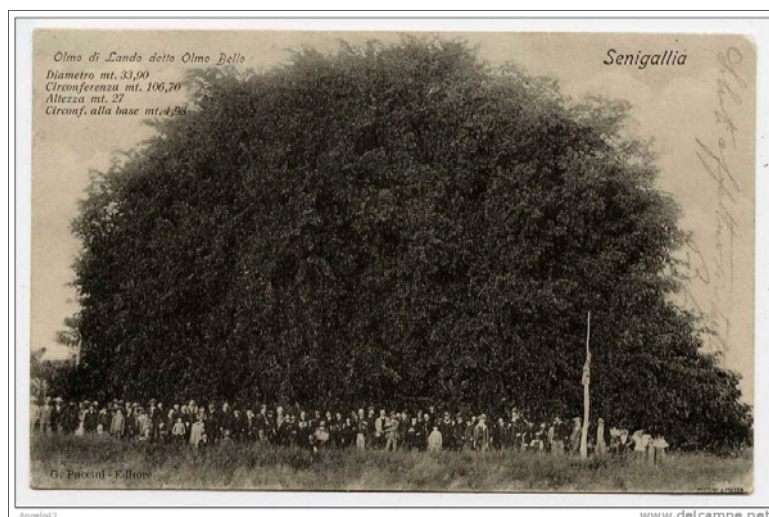 Olmo di Lando detto Olmo Bello
Diametro mt. 33,90
Circonferenza mt. 106,70
Altezza mt. 27
Circonf. alla base mt. 4,98
Senigallia
G. Puccini - Editore
Angelo42
www.delcampe.net